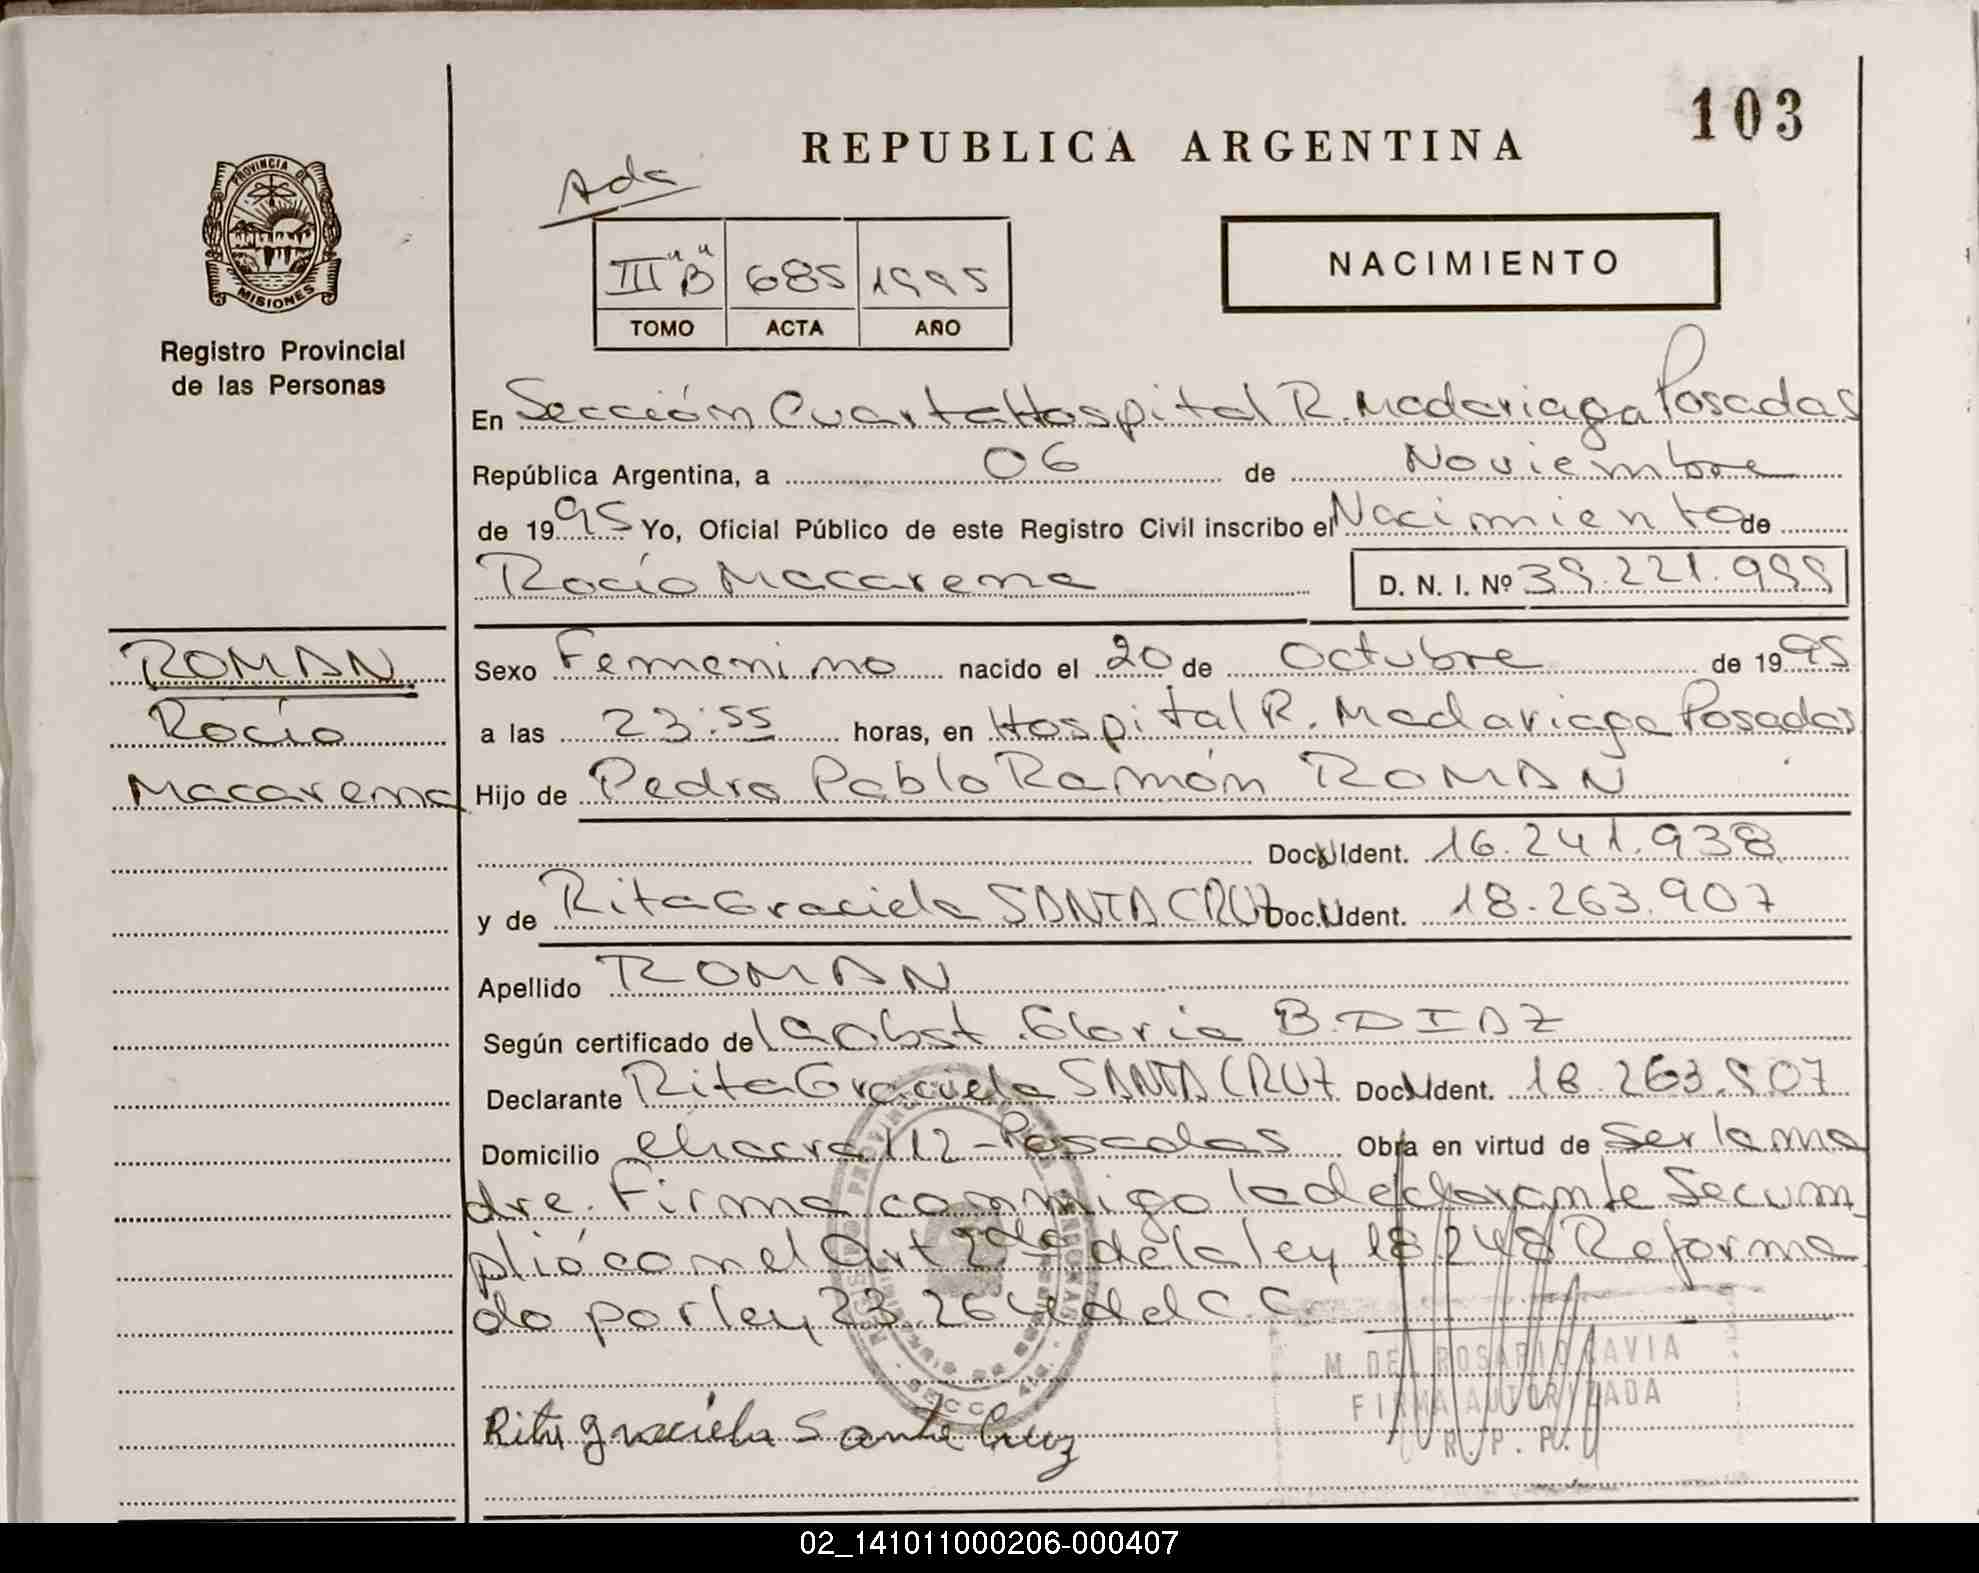 103
REPUBLICA ARGENTINA
Ada
PROVINCIA DE
MISIONES
III "B" 685 1995
TOMO ACTA AÑO
NACIMIENTO
Registro Provincial
de las Personas
En Sección Cuarta Hospital R. Madariaga Posadas
República Argentina, a 06 de Noviembre
de 1995 Yo, Oficial Público de este Registro Civil inscribo el Nacimiento de
Rocío Macarena
D. N. I. Nº 39.221.999
ROMAN
Rocío
Macarena
Sexo Femenino nacido el 20 de Octubre de 1995
a las 23:55 horas, en Hospital R. Madariaga Posadas
Hijo de Pedro Pablo Ramón ROMAN
Doc. Ident. 16.241.938
y de Rita Graciela SANTA CRUZ Doc. Ident. 18.263.907
Apellido ROMAN
Según certificado de la Obst. Gloria B. DIAZ
Declarante Rita Graciela SANTA CRUZ Doc. Ident. 18.263.907
Domicilio Chacra 112 - Posadas Obra en virtud de ser la ma
dre. Firma conmigo la declarante Se cum
plió con el Art 2do de la ley 18.248 Reforma
do por ley 23.264 del C.C.
M. DEL ROSARIO GAVIA
FIRMA AUTORIZADA
R. P. P.
Rita Graciela Santa Cruz
02_141011000206-000407